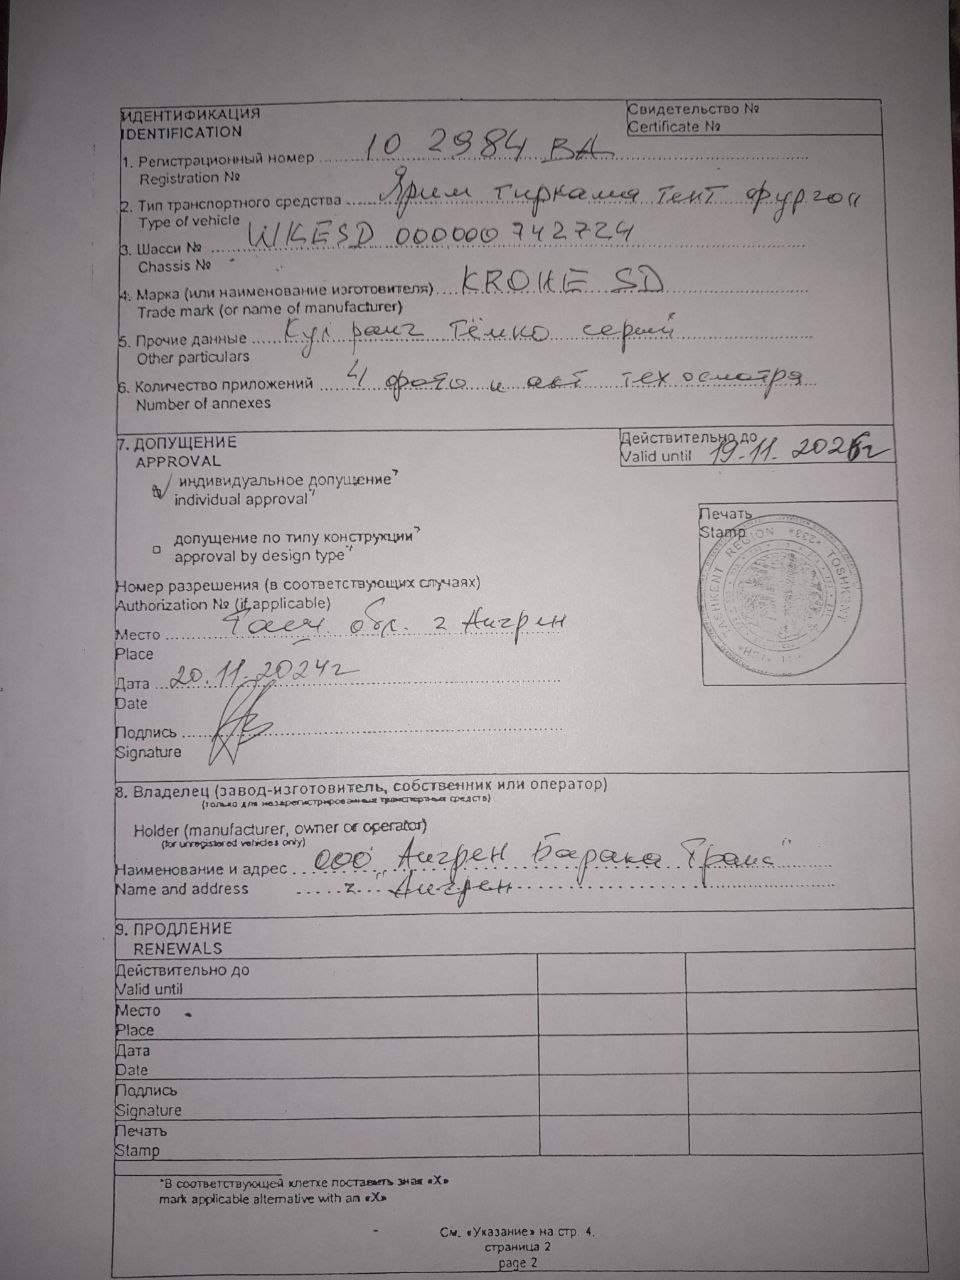 ИДЕНТИФИКАЦИЯ
IDENTIFICATION
Свидетельство №
Certificate №
1. Регистрационный номер 10 2984 ВА
Registration №
2. Тип транспортного средства Ярим тиркама тент фургон
Type of vehicle
3. Шасси № WKESD 000000 742724
Chassis №
4. Марка (или наименование изготовителя) KROHE SD
Trade mark (or name of manufacturer)
5. Прочие данные Кул ранг Тёмно серый
Other particulars
6. Количество приложений 4 фото и акт тех осмотра
Number of annexes
7. ДОПУЩЕНИЕ
APPROVAL
Действительно до
Valid until 19.11.2026г
индивидуальное допущение*
individual approval*
допущение по типу конструкции*
approval by design type*
Печать
Stamp
TASHKENT REGION *233* TOSHKENT
Номер разрешения (в соответствующих случаях)
Authorization № (if applicable)
Место Таш. обл. г Ангрен
Place
Дата 20.11.2024г
Date
Подпись
Signature
8. Владелец (завод-изготовитель, собственник или оператор)
(только для незарегистрированных транспортных средств)
Holder (manufacturer, owner or operator)
(for unregistered vehicles only)
Наименование и адрес ООО "Ангрен Барака Транс"
Name and address г. Ангрен
9. ПРОДЛЕНИЕ
RENEWALS
Действительно до
Valid until
Место
Place
Дата
Date
Подпись
Signature
Печать
Stamp
*В соответствующей клетке поставить знак «X»
mark applicable alternative with an «X»
См. «Указание» на стр. 4.
страница 2
page 2